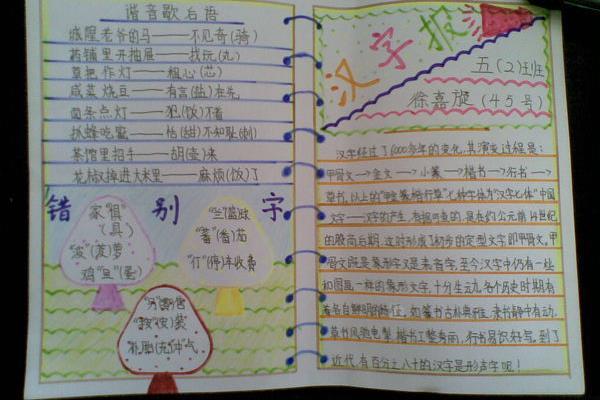 谐音歇后语
城隍老爷的马——不见奇(骑)
药铺里开抽屉——找玩(丸)
草把作灯——粗心(芯)
咸菜烧豆——有言(盐)在先
面条点灯——犯(饭)不着
扒蜂吃蜜——恬(甜)不知耻(刺)
茶馆里招手——胡(壶)来
花椒掉进大米里——麻烦(饭)了
错别字
家"俱"
(具)
"波"(菠)萝
鸡"旦"(蛋)
"兰"(篮)球
"蕃"(番)茄
"行"(停)车收费
"另"(零)售
"按"(安)装
补胎(充)"冲"气
汉字报
五(2)班
徐嘉旋(45号)
汉字经过了6000多年的变化,其演变过程是:
甲骨文—>金文—>小篆—>楷书—>行书—>
草书,以上的"甲金篆楷行草"七种字体为"汉字七体"中国
文字——汉字的产生,有据可查的,是在约公元前14世纪
的殷商后期,这时形成了初步的定型文字,即甲骨文。甲
骨文既是象形字又是表音字,至今汉字中仍有一些
和图画一样的象形文字,十分生动,各个历史时期有
着各自鲜明的特征,如篆书古朴典雅,隶书静中有动,
草书风驰电掣,楷书工整秀丽,行书易识好写,到了
近代,有百分之八十的汉字是形声字呢!